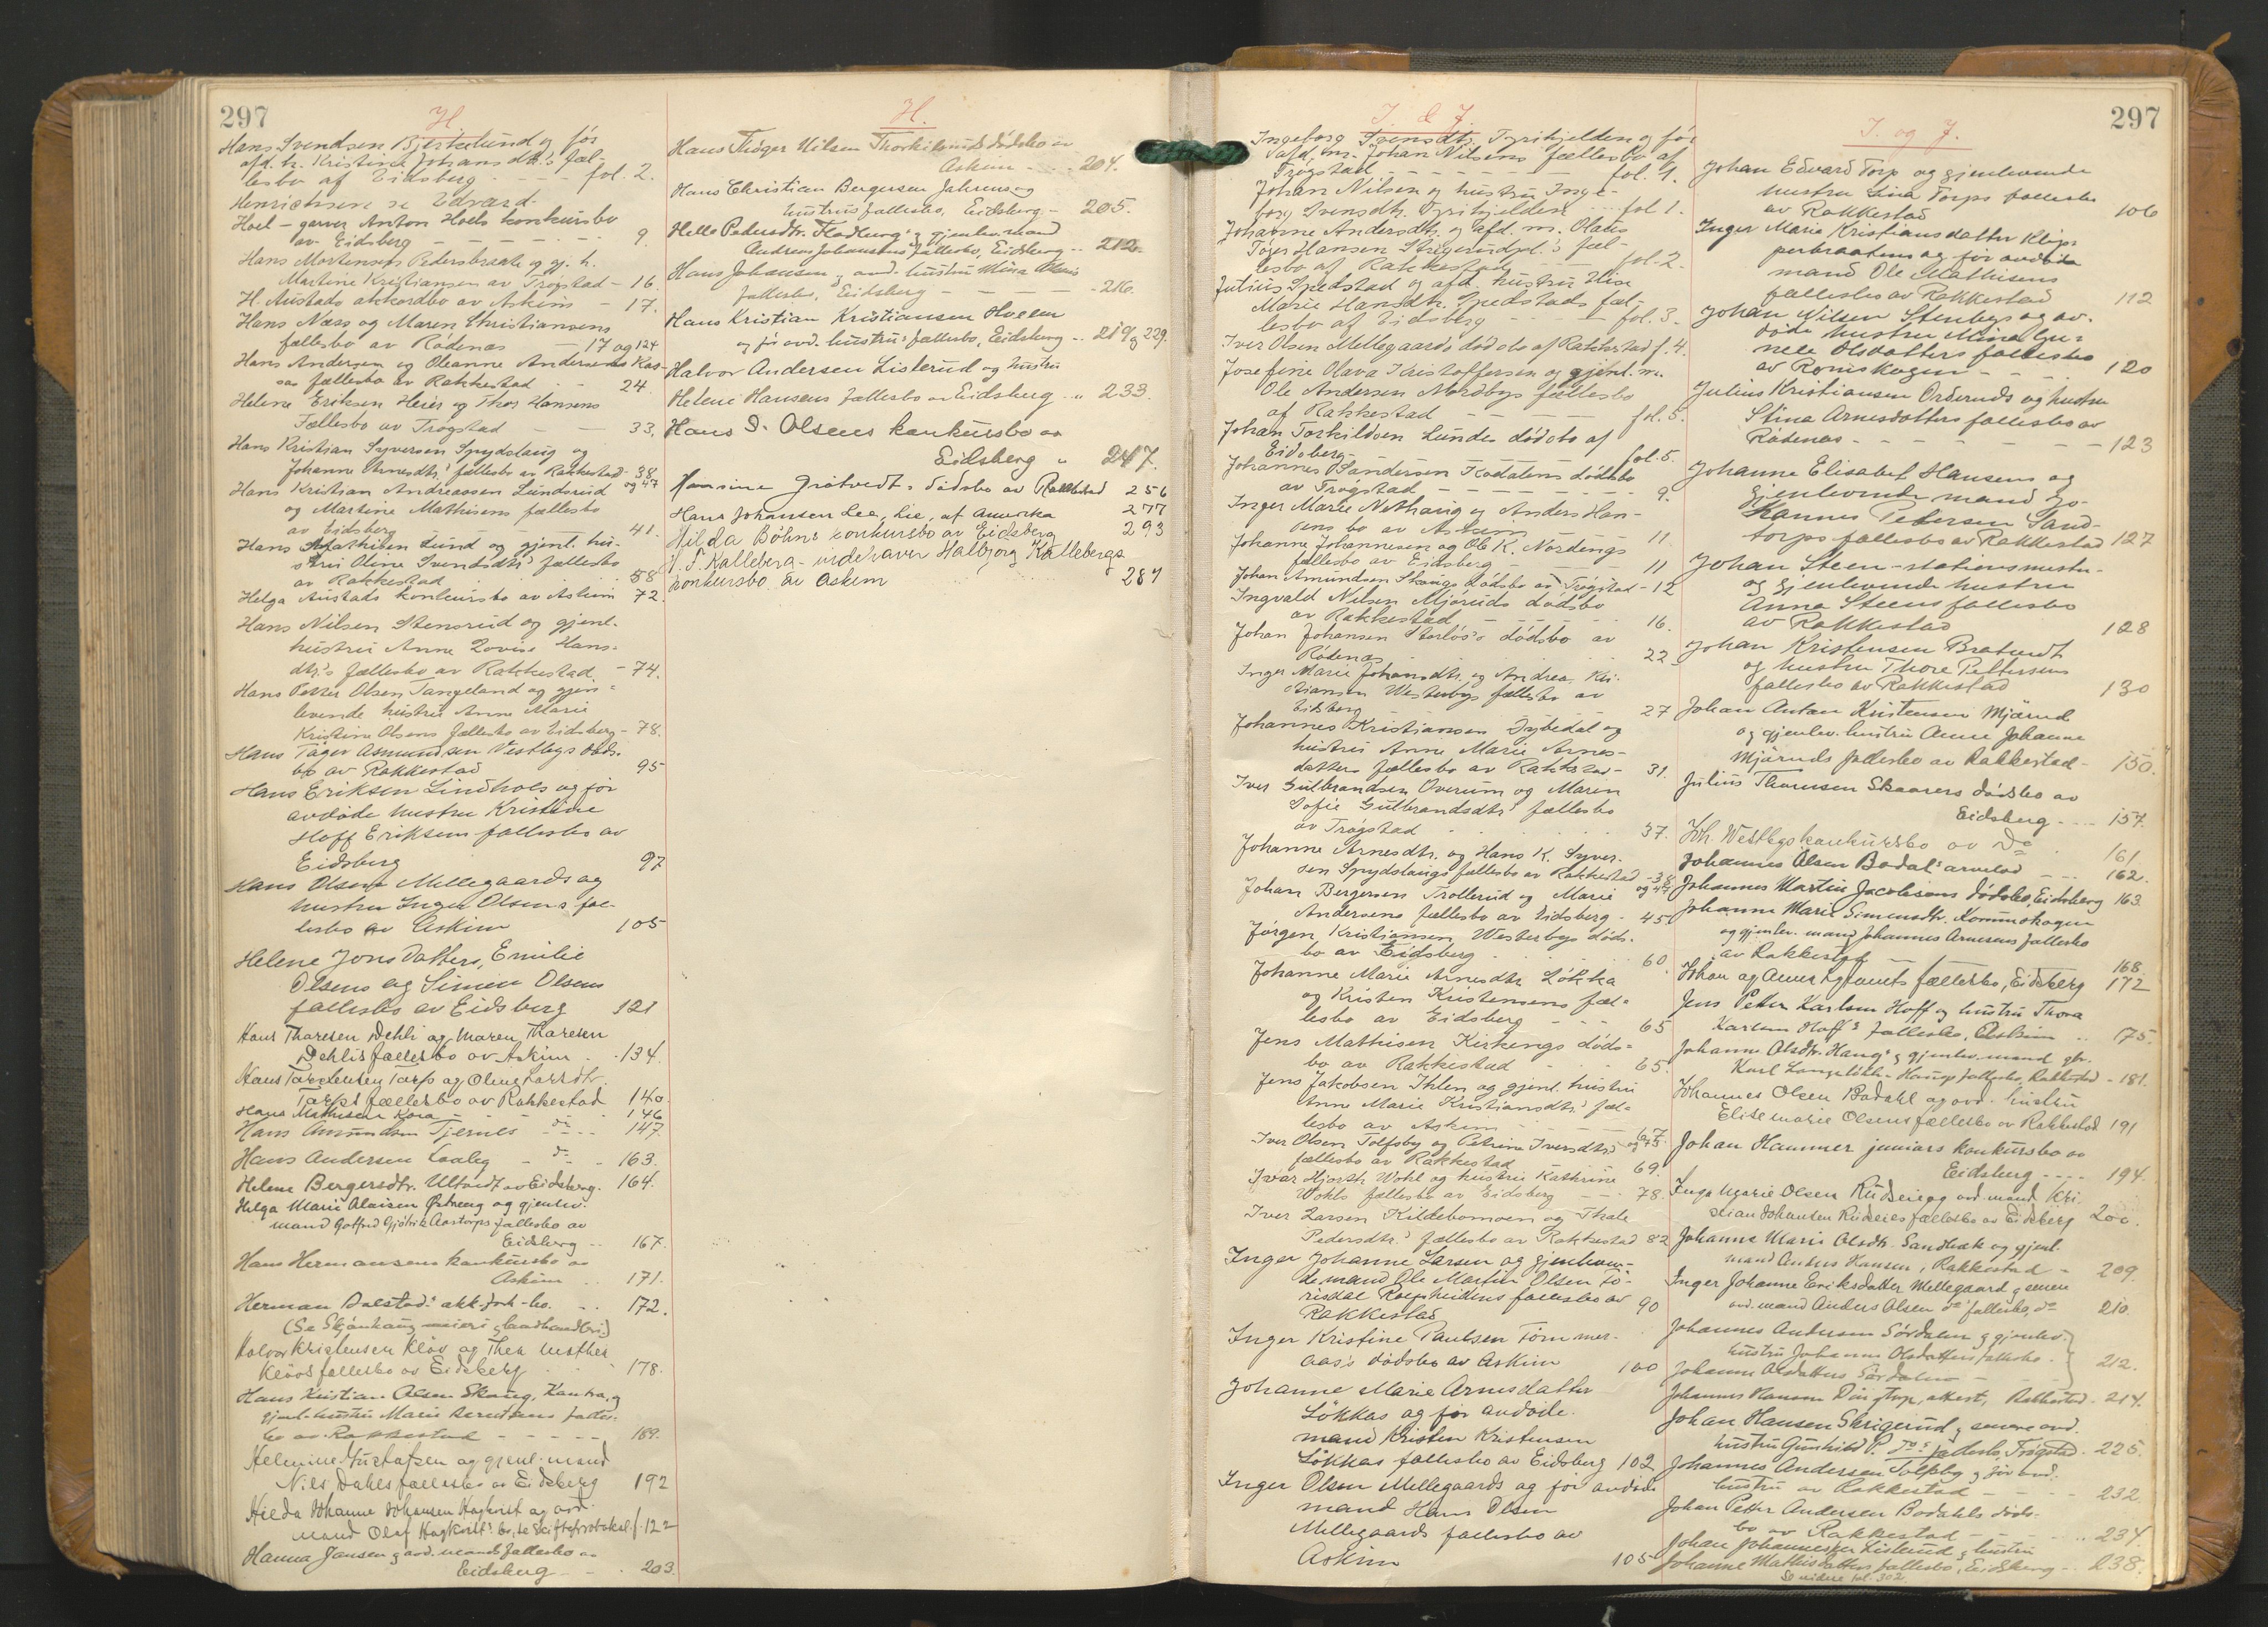 297
H.
Hans Svendsen Bjerkelund og før
afd. h. Kristine Johansdtr.s fæl-
lesbo af Eidsberg - - - fol. 2.
Henrichsen se Edvard.
Hoel - garver Anton Hoels konkursbo
av Eidsberg - - - - - 9.
Hans Mortensen Pedersbraate og gj. h.
Martine Kristiansen av Trøgstad - 16.
H. Austads akkordbo av Askim - 17.
Hans Næss og Maren Christiansens
fællesbo av Rødenæs - 17 og 124
Hans Andersen og Oleanne Andersens Kas-
sas fællesbo av Rakkestad 24.
Helene Eriksen Heier og Thor Hansens
Fællesbo av Trøgstad - - 33.
Hans Kristian Syversen Spydslaug og
Johanne Arnesdtr.s fællesbo av Rakkestad - 38 og 47
Hans Kristian Andreassen Lundsrud
og Martine Mathisens fællesbo
av Eidsberg 41.
Hans Mathisen Lund og gjenl. hu-
stru Oline Svendsdtr.s fællesbo
av Rakkestad 58
Helga Austads konkursbo av Askim 72.
Hans Nilsen Stensrud og gjenl.
hustru Anne Lovise Hans-
dtr.s fællesbo av Rakkestad - 74.
Hans Petter Olsen Tangeland og gjen-
levende hustru Anne Marie
Kristine Olsens fællesbo av Eidsberg - 78.
Hans Tåger Asmundsen Vestbys døds-
bo av Rakkestad 95
Hans Eriksen Lindhols og før
avdøde hustru Kristine
Hoff Eriksens fællesbo av
Eidsberg 97
Hans Olsen Mellegaards og
hustru Inger Olsens fæl-
lesbo av Askim 105
Helene Jonsdatters, Emilie
Olsens og Simen Olsens
fællesbo av Eidsberg 121
Hans Thoresen Dehli og Maren Thoresen
Dehlis fællesbo av Askim - 134.
Hans Torstensen Torp og Oline Larsdtr.
Torps fællesbo av Rakkestad 140.
Hans Mathisen Kora - - - 146
Hans Amundsen Tjernes - do - 147.
Hans Andersen Laaby - do - 163.
Helene Bergersdtr. Ultvedt av Eidsberg. 164.
Helga Marie Alaisen Østreng og gjenlev.
mand Gotfred Gjølrik Aastorps fællesbo av
Eidsberg - 167.
Hans Hermansens konkursbo av
Askim .. 171.
Herman Dalstad's akkord-bo. .. 172.
(Se Skjønhaug meieri & landhandleri)
Halvor Kristensen Kløv og Thea Mathea
Kløvs fællesbo av Eidsberg 178.
Hans Kristian Olsen Skaug, Kantra, og
gjenl. hustru Marie Berntsens fælles-
bo av Rakkestad - - - - 189.
Helmine Gustafsen og gjenl. mand
Nils Dahls fællesbo av Eidsberg 192
Hilda Johanne Johansen Hagkvist og avd.
mand Olaf Hagkvist's bo, se skifteprotokol f. 122
Hanna Jansen & avd. mands fællesbo av
Eidsberg - . 203.
H.
Hans Thøger Nilsen Thorkilsruds dødsbo av
Askim - - 204.
Hans Christian Bergersen Jahrens og
hustrus fællesbo, Eidsberg - 205.
Helle Pedersdtr. Flodberg's & gjenlev. mand
Andreas Johansens fællesbo, Eidsberg .. 212.
Hans Johansen & avd. hustru Mina Olsens
fællesbo, Eidsberg - - - - 216.
Hans Kristian Kristiansen Hveem
og før avd. hustrus fællesbo, Eidsberg .. 219 & 229.
Halvor Andersen Listerud og hustru
Helene Hansens fællesbo av Eidsberg .. 233.
Hans D. Olsens konkursbo av
Eidsberg " 247.
Hansine Grøtvedts dødsbo av Rakkestad 256
Hans Johansen Lee, Lie, af Amerika 277
Hilda Böhns konkursbo av Eidsberg 293
H. S. Kalleberg - indehaver Halbjørg Kallebergs
konkursbo av Askim 287
I. & J.
Ingeborg Svensdtr. Tyrihjelden og før
afd. m. Johan Nilsens fællesbo af
Trøgstad - - - - - fol. 1.
Johan Nilsen og hustru Inge-
borg Svensdtr. Tyrihjelden - - fol 1.
Johanne Andersdtr. og afd. m. Olaus
Tøger Hansen Skigerudpl.s fæl-
lesbo af Rakkestad - fol. 2.
Julius Spedstad og afd. hustru Elise
Marie Hansdtr. Spedstads fæl-
lesbo af Eidsberg - - - fol. 3.
Iver Olsen Mellegaards dødsbo af Rakkestad f. 4.
Josefine Olava Kristoffersen og gjenl. m.
Ole Andersen Nordbys fællesbo
af Rakkestad - - - fol. 5.
Johan Torkildsen Lundes dødsbo af
Eidsberg - fol. 5.
Johannes Sandersen Kodalens dødsbo
av Trøgstad - - - - 9.
Inger Marie Nethaug og Anders Han-
sens bo av Askim 11.
Johanne Johannesen og Ole K. Nordengs
fællesbo av Eidsberg - - - 11
Johan Amundsen Skaugs dødsbo av Trøgstad - 12
Ingvald Nilsen Mjøruds dødsbo
av Rakkestad - - - 16.
Johan Johansen Storløs's dødsbo av
Rødenæs 22
Inger Marie Johansdtr. og Andreas Kri-
stiansen Westerbys fællesbo av
Eidsberg 27
Johannes Kristiansen Dybedal og
hustru Anne Marie Arnes-
datters fællesbo av Rakkestad - 31.
Iver Gulbrandsen Overum og Maren
Sofie Gulbrandsdtr.s fællesbo
av Trøgstad 37.
Johanne Arnesdtr. og Hans K. Syver-
sen Spydslaugs fællesbo av Rakkestad - 38 og 47
Johan Bergersen Trollerud og Marie
Andersens fællesbo av Eidsberg - 45
Jørgen Kristiansen Westerbys døds-
bo av Eidsberg 60.
Johanne Marie Arnesdtr. Løkka
og Kristen Kristensens fæl-
lesbo av Eidsberg - - - 65
Jens Mathisen Kirkengs døds-
bo av Rakkestad - - 65.
Jens Jakobsen Ihlen og gjenl. hustru
Anne Marie Kristiansdtr.s fæl-
lesbo av Askim - - - 67. og 75.
Iver Olsen Tolfsby og Petrine Iversdtr.s
fællesbo av Rakkestad 69.
Ivar Hjorth Wohl og hustru Kathrine
Wohls fællesbo av Eidsberg - - 78.
Iver Larsen Kildebomoen og Thale
Pedersdtr.s fællesbo av Rakkestad 82
Inger Johanne Larsen og gjenleven-
de mand Ole Martin Olsen Tö-
risdal fællesbo av
Rakkestad 90
Inger Kristine Paulsen Tömmer-
aas's dødsbo av Askim 100
Johanne Marie Arnesdatter
Løkkas og før avdøde
mand Kristen Kristensen
Løkkas fællesbo av Eidsberg 102
Inger Olsen Mellegaards og før avdøde
mand Hans Olsen
Mellegaards fællesbo av
Askim 105
297
I. og J.
Johan Edvard Torp og gjenlevende
hustru Lina Torps fællesbo
av Rakkestad 106
Inger Marie Kristiansdatter Klop-
perbraatens og før avdøde
mand Ole Mathisens
fællesbo av Rakkestad 112
Johan Nilsen Stenbys og av-
døde hustru Mina Gu-
nele Olsdatters fællesbo
av Romskogen - - - 120
Julius Kristiansen Orderuds og hustru
Stina Arnesdatters fællesbo av
Rødenæs - - - - - 123
Johanne Elisabet Hansens og
gjenlevende mand Jo-
hannes Petersen Sand-
torps fællesbo av Rakkestad 127
Johan Steen - stationsmester
og gjenlevende hustru
Anna Steens fællesbo
av Rakkestad 128
Johan Kristensen Bratvedt
og hustru Thore Pettersens
fællesbo av Rakkestad 130
Johan Anton Kristensen Mjørud
og gjenlev. hustru Anne Johanne
Mjøruds fællesbo av Rakkestad - 150.
Julius Thoresen Skaarers dødsbo av
Eidsberg - - 157.
Joh. Westbys konkursbo av Do 161.
Johannes Olsen Bodal's arvelod - - 162.
Johannes Martin Jacobsens dødsbo, Eidsberg 163.
Johanne Marie Simensdtr. Kommeskogen
og gjenlev. mand Johannes Arnesens fællesbo
av Rakkestad 168.
Johan og Anne fællesbo, Eidsberg 172
Jens Petter Karlsen Hoff og hustru Thora
Karlsen Hoff's fællesbo, Askim .. 175.
Johanne Olsdtr. Haug's & gjenlev. mand
Karl Langeløkken Haugs fællesbo, Rakkestad - 181.
Johannes Olsen Bodahl og avd. hustru
Elise Marie Olsens fællesbo av Rakkestad 191
Johan Hammer juniors konkursbo av
Eidsberg - - - 194.
Inga Marie Olsen Rudseie og avd. mand Kri-
stian Johansen Rudseies fællesbo av Eidsberg 200.
Johanne Marie Olsdtr. Sandbæk og gjenl.
mand Anders Hansen, Rakkestad - 209.
Inger Johanne Eriksdatter Mellegaard & senere
avd. mand Anders Olsen do's fællesbo, do 210.
Johannes Andersen Sördalen & gjenlev.
hustru Johanne Olsdatters fællesbo.
Johanne Olsdatters Sördalen - - - 212.
Johannes Hansen Dingstorp, attest, Rakkestad - 214.
Johan Hansen Skrigerud & senere avd.
hustru Gunhild P. Do's fællesbo, Trøgstad - 225
Johannes Andersen Tolfsby & før avd.
hustru av Rakkestad - - - - 232.
Johan Petter Andersen Bodahls døds-
bo av Rakkestad - - - .. 234.
Johan Johannessen Listerud & hustru
Johanne Mathisdatters fællesbo, Eidsberg - . 238.
Se videre fol. 302.